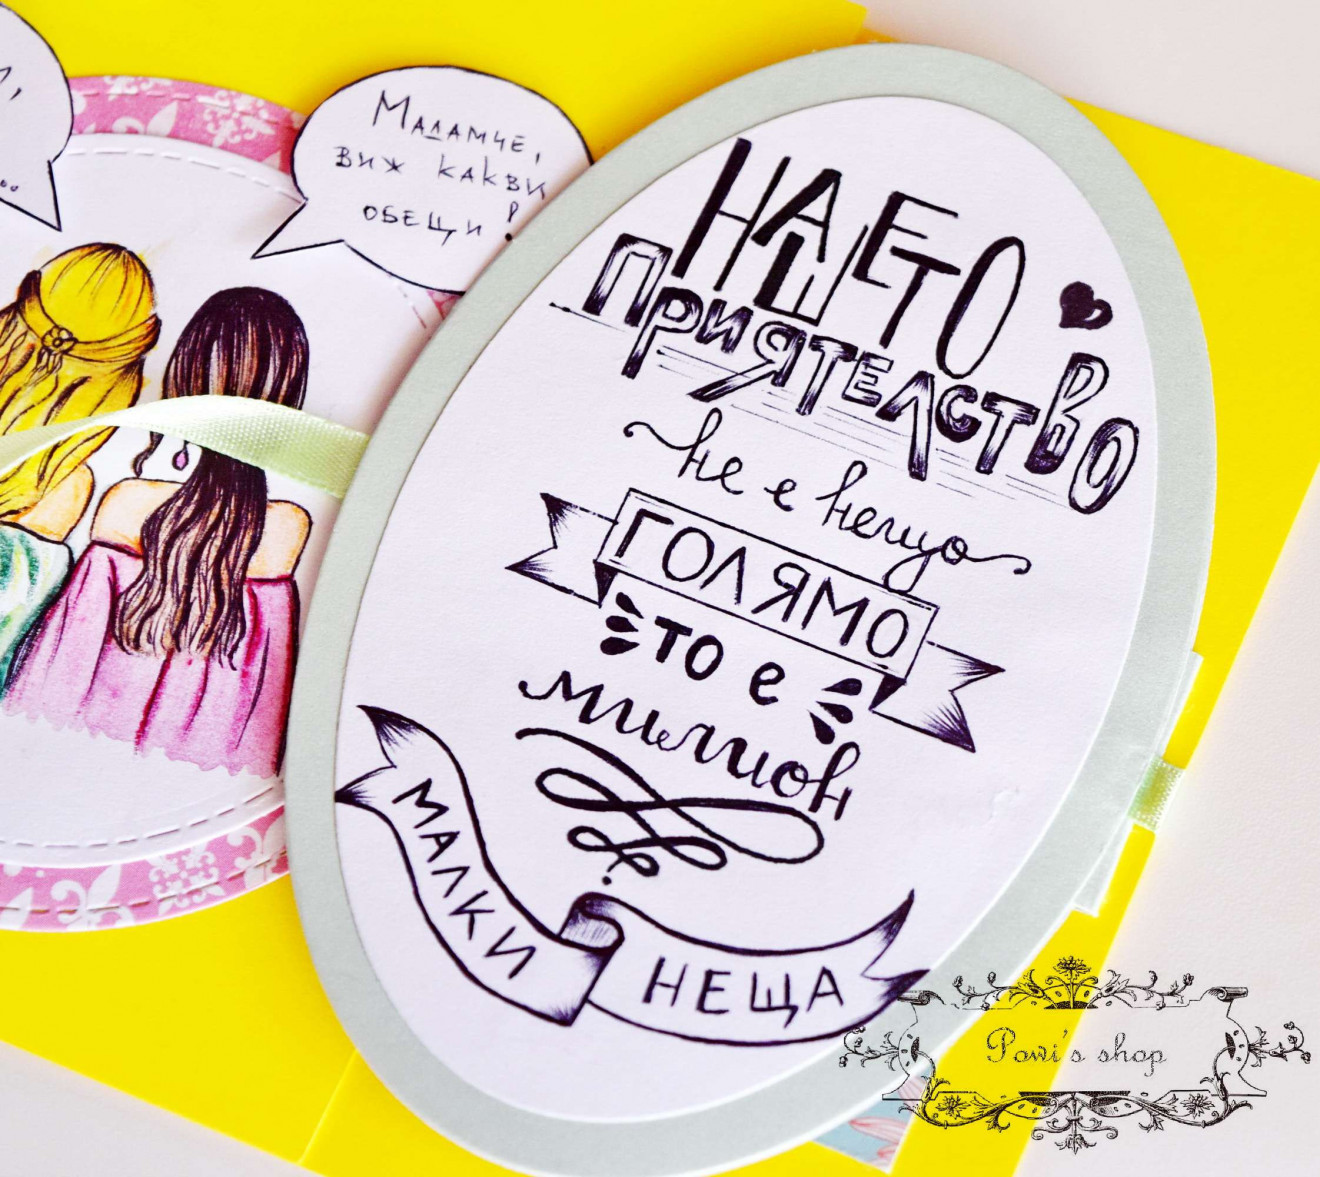 Маламче,
виж какви
обещи!
НАШЕТО
ПРИЯТЕЛСТВО
не е нещо
ГОЛЯМО
то е
милион
МАЛКИ
НЕЩА
Powi's shop